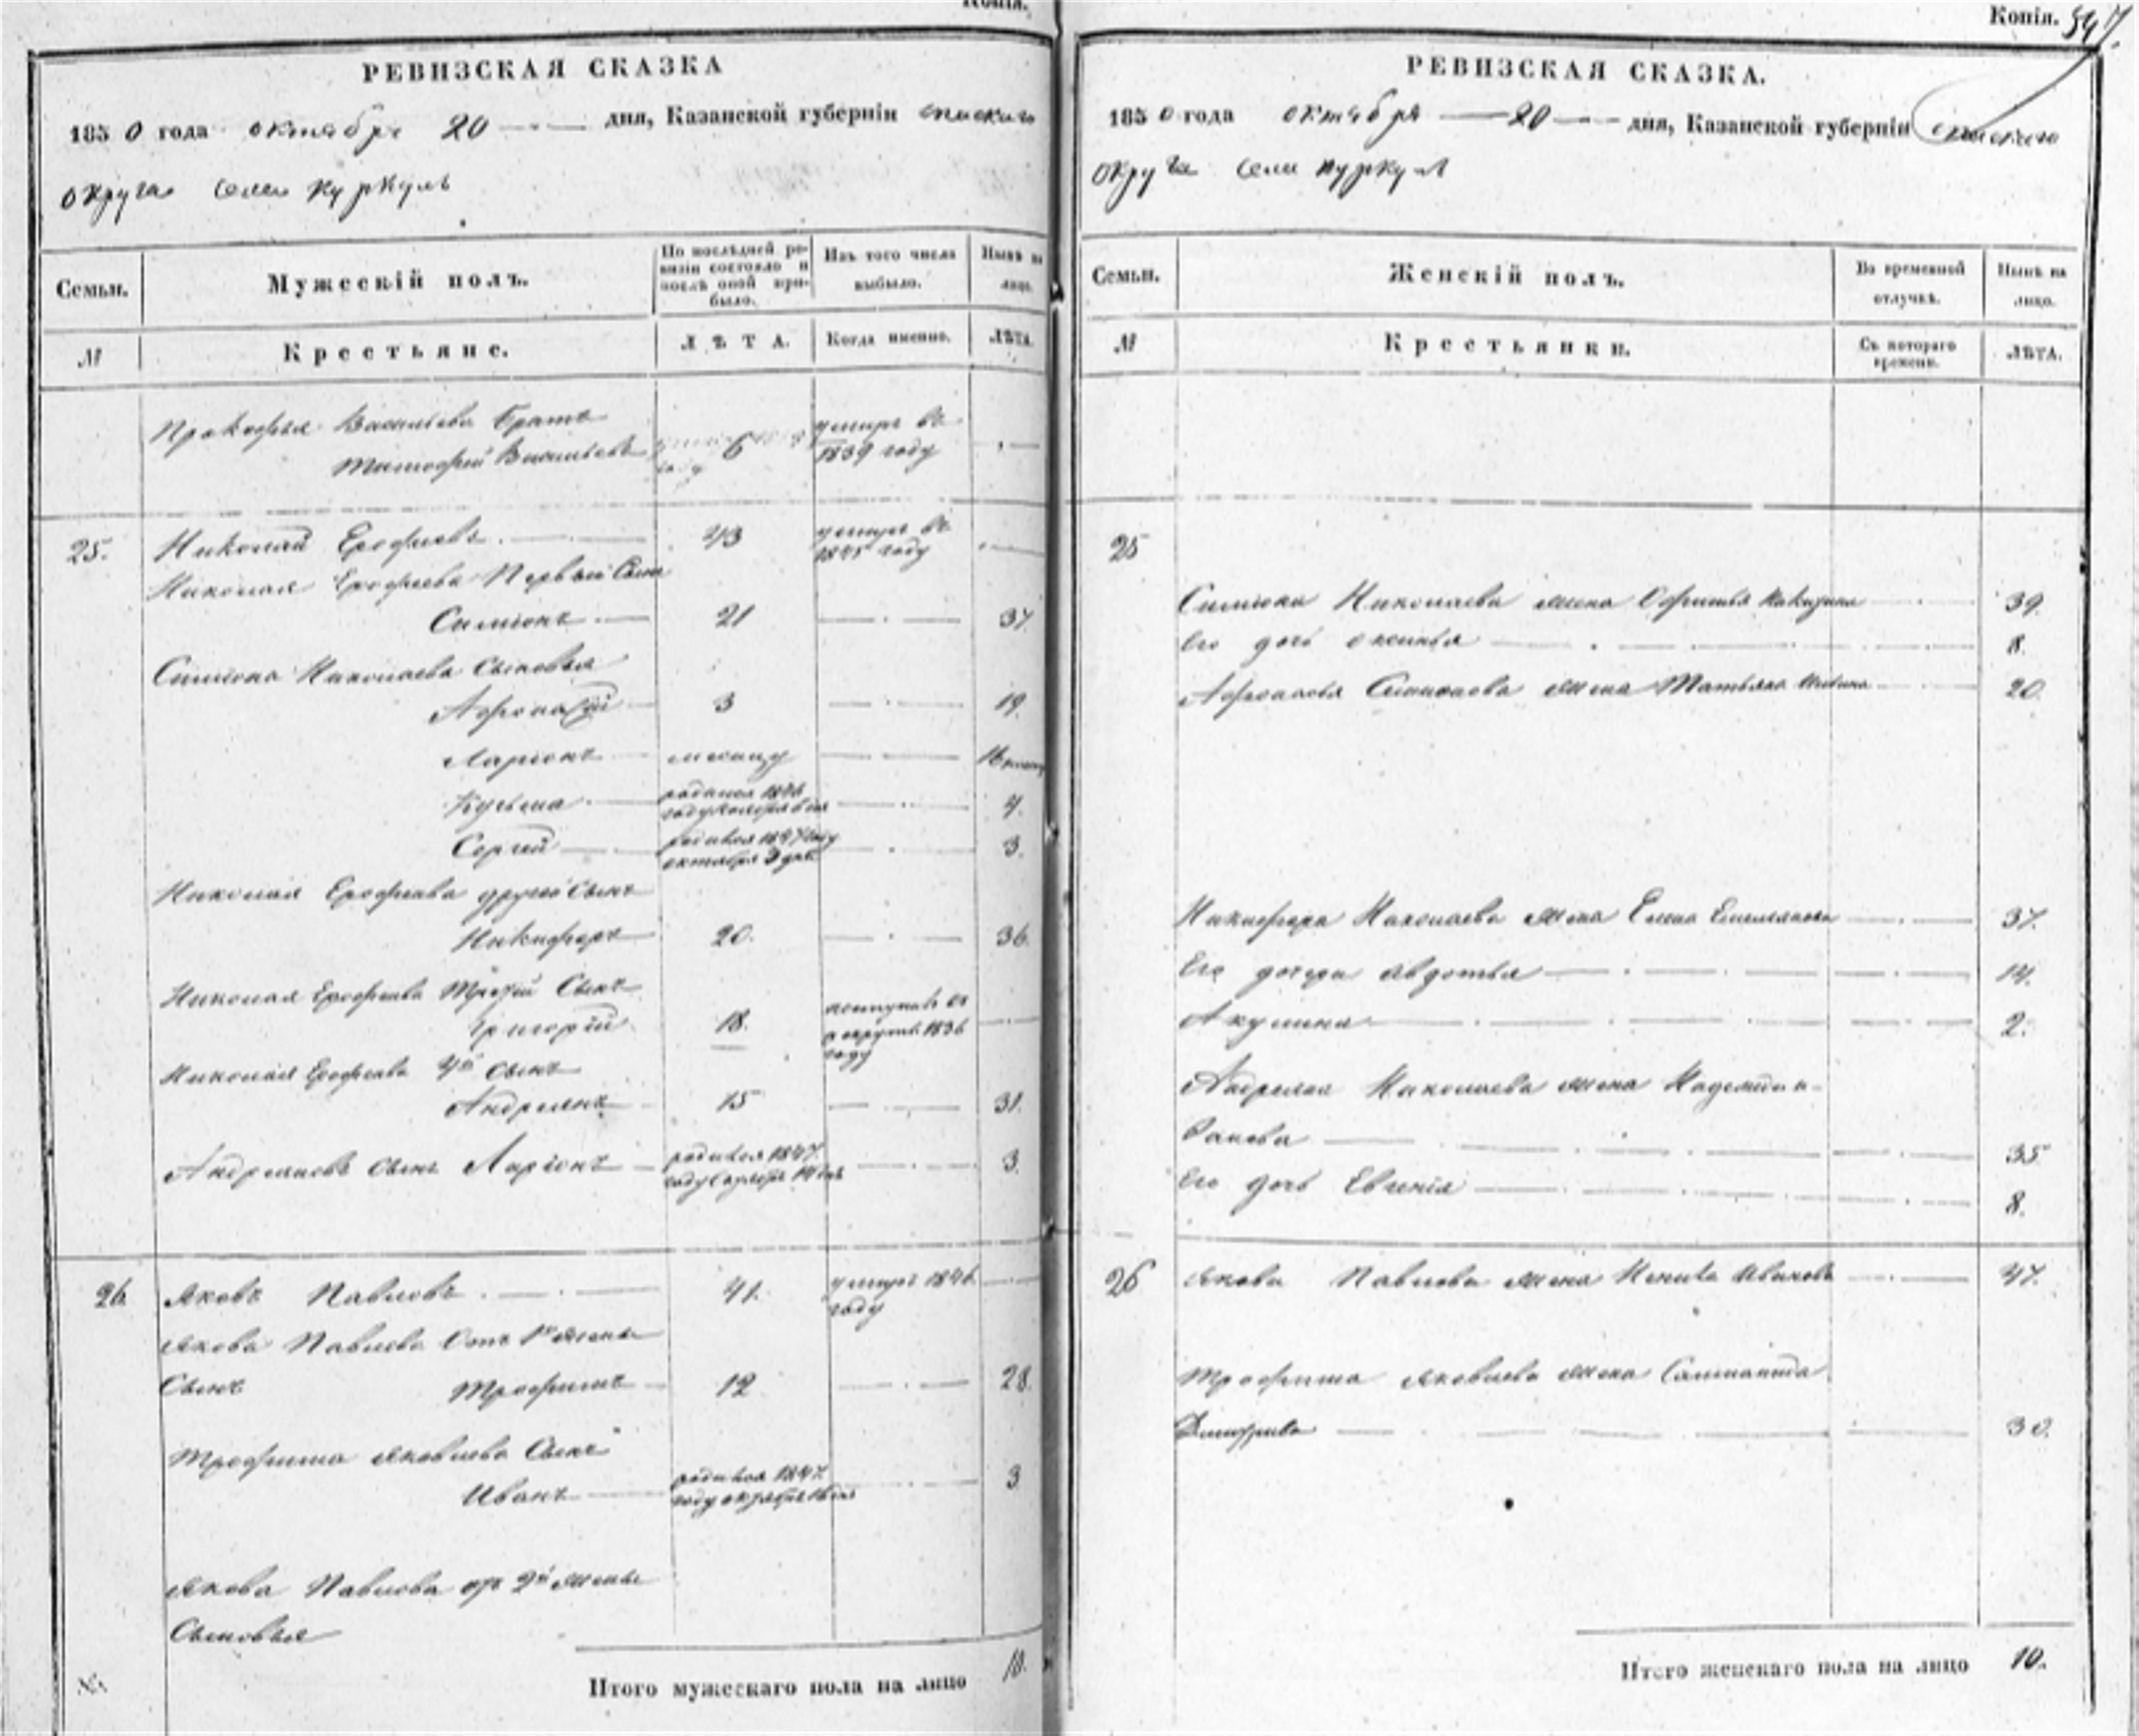 Копія.
РЕВИЗСКАЯ СКАЗКА
1850 года октября 20 дня, Казанской губерніи Спаского
округа села Куркуль
Семьи.
Мужескій полъ.
По послѣдней ревизіи состояло и послѣ оной прибыло.
Изъ того числа выбыло.
Нынѣ на лицо.
№
Крестьяне.
ЛѢТА.
Когда именно.
ЛѢТА.
Прокофья Васильева братъ
Тимофей Васильевъ 6 умиръ въ 1839 году
25. Николай Ерофиевъ 43 умиръ въ 1845 году
Николая Ерофиева Первый Сынъ
Симионъ 21 37.
Симиона Николаева Сыновья
Афонасій 3 19.
Ларионъ месяцу 16
Кузьма родился 1846 году 4.
Сергей родился 1847 году октября 3 дня 3.
Николая Ерофиева другой Сынъ
Никифоръ 20. 36.
Николая Ерофиева Третій Сынъ
Григорій 18. поступилъ въ рекруты 1836 году
Николая Ерофиева 4й Сынъ
Андреянъ 15 31.
Андреяновъ сынъ Ларіонъ родился 1847 году 3.
26. Яковъ Павловъ 41. умиръ 1846 году
Якова Павлова Отъ 1й жены
Сынъ Трофимъ 12 28.
Трофима Яковлева Сынъ
Иванъ родился 1847 году октября 16 дня 3
Якова Павлова от 2й жены
Сыновья
Итого мужескаго пола на лицо 10.
Копія. 547.
РЕВИЗСКАЯ СКАЗКА.
1850 года октября 20 дня, Казанской губерніи Спаского
округа села Куркуль
Семьи.
Женскій полъ.
Во временной отлучкѣ.
Нынѣ на лицо.
№
Крестьянки.
Съ котораго времени.
ЛѢТА.
25
Симиона Николаева жена Офимья 39.
Его дочь 8.
Афонасья Симионова жена Татьяна 20.
Никифора Николаева жена Елена Емельянова 37.
Его дочери Авдотья 14.
Акулина 2.
Андреяна Николаева жена Надежда
35
Его дочь Евгенія 8.
26 Якова Павлова жена Иванова 47.
Трофима Яковлева жена
Дмитриева 30.
Итого женскаго пола на лицо 10.